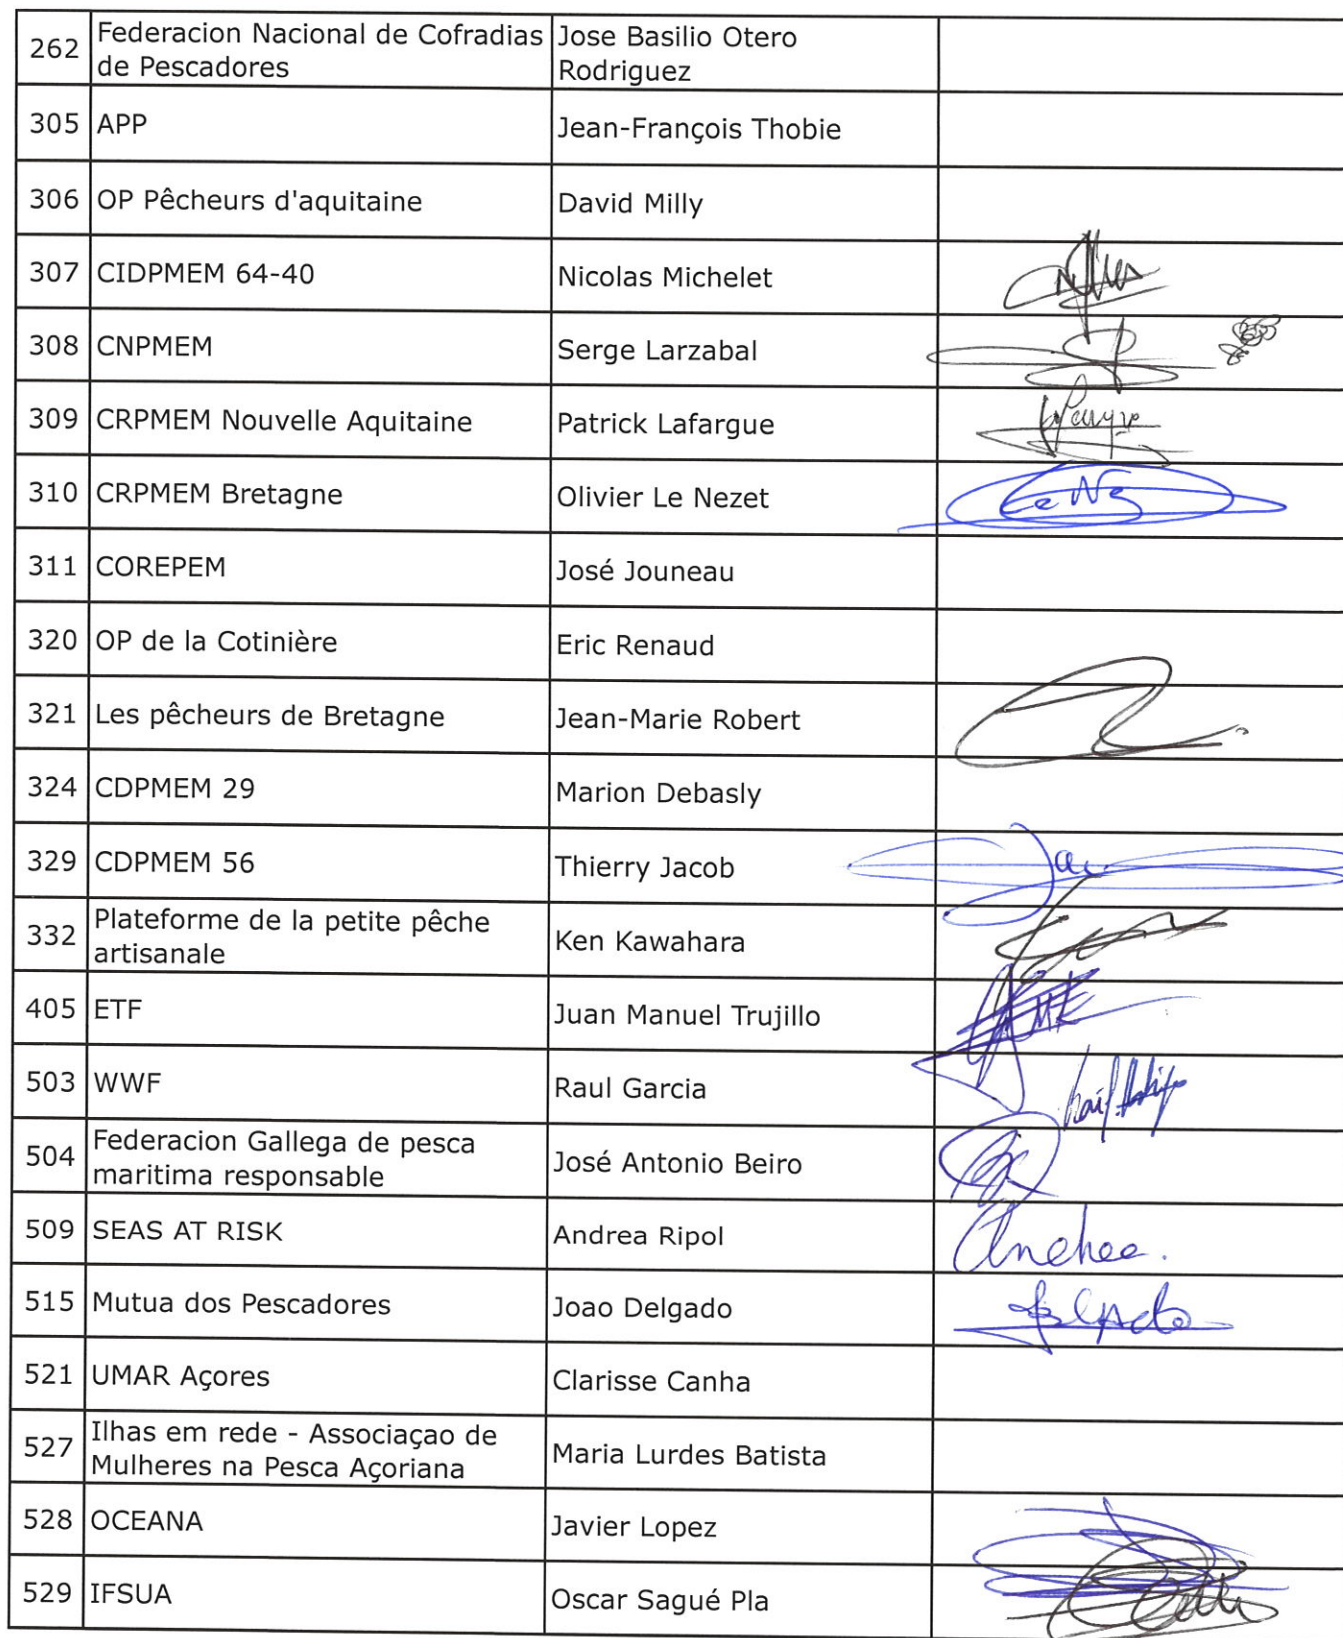 262 Federacion Nacional de Cofradias Jose Basilio Otero
de Pescadores Rodriguez
305 APP Jean-François Thobie
306 OP Pêcheurs d'aquitaine David Milly
307 CIDPMEM 64-40 Nicolas Michelet
308 CNPMEM Serge Larzabal
309 CRPMEM Nouvelle Aquitaine Patrick Lafargue
310 CRPMEM Bretagne Olivier Le Nezet
311 COREPEM José Jouneau
320 OP de la Cotinière Eric Renaud
321 Les pêcheurs de Bretagne Jean-Marie Robert
324 CDPMEM 29 Marion Debasly
329 CDPMEM 56 Thierry Jacob
332 Plateforme de la petite pêche Ken Kawahara
artisanale
405 ETF Juan Manuel Trujillo
503 WWF Raul Garcia
504 Federacion Gallega de pesca José Antonio Beiro
maritima responsable
509 SEAS AT RISK Andrea Ripol
515 Mutua dos Pescadores Joao Delgado
521 UMAR Açores Clarisse Canha
527 Ilhas em rede - Associaçao de Maria Lurdes Batista
Mulheres na Pesca Açoriana
528 OCEANA Javier Lopez
529 IFSUA Oscar Sagué Pla